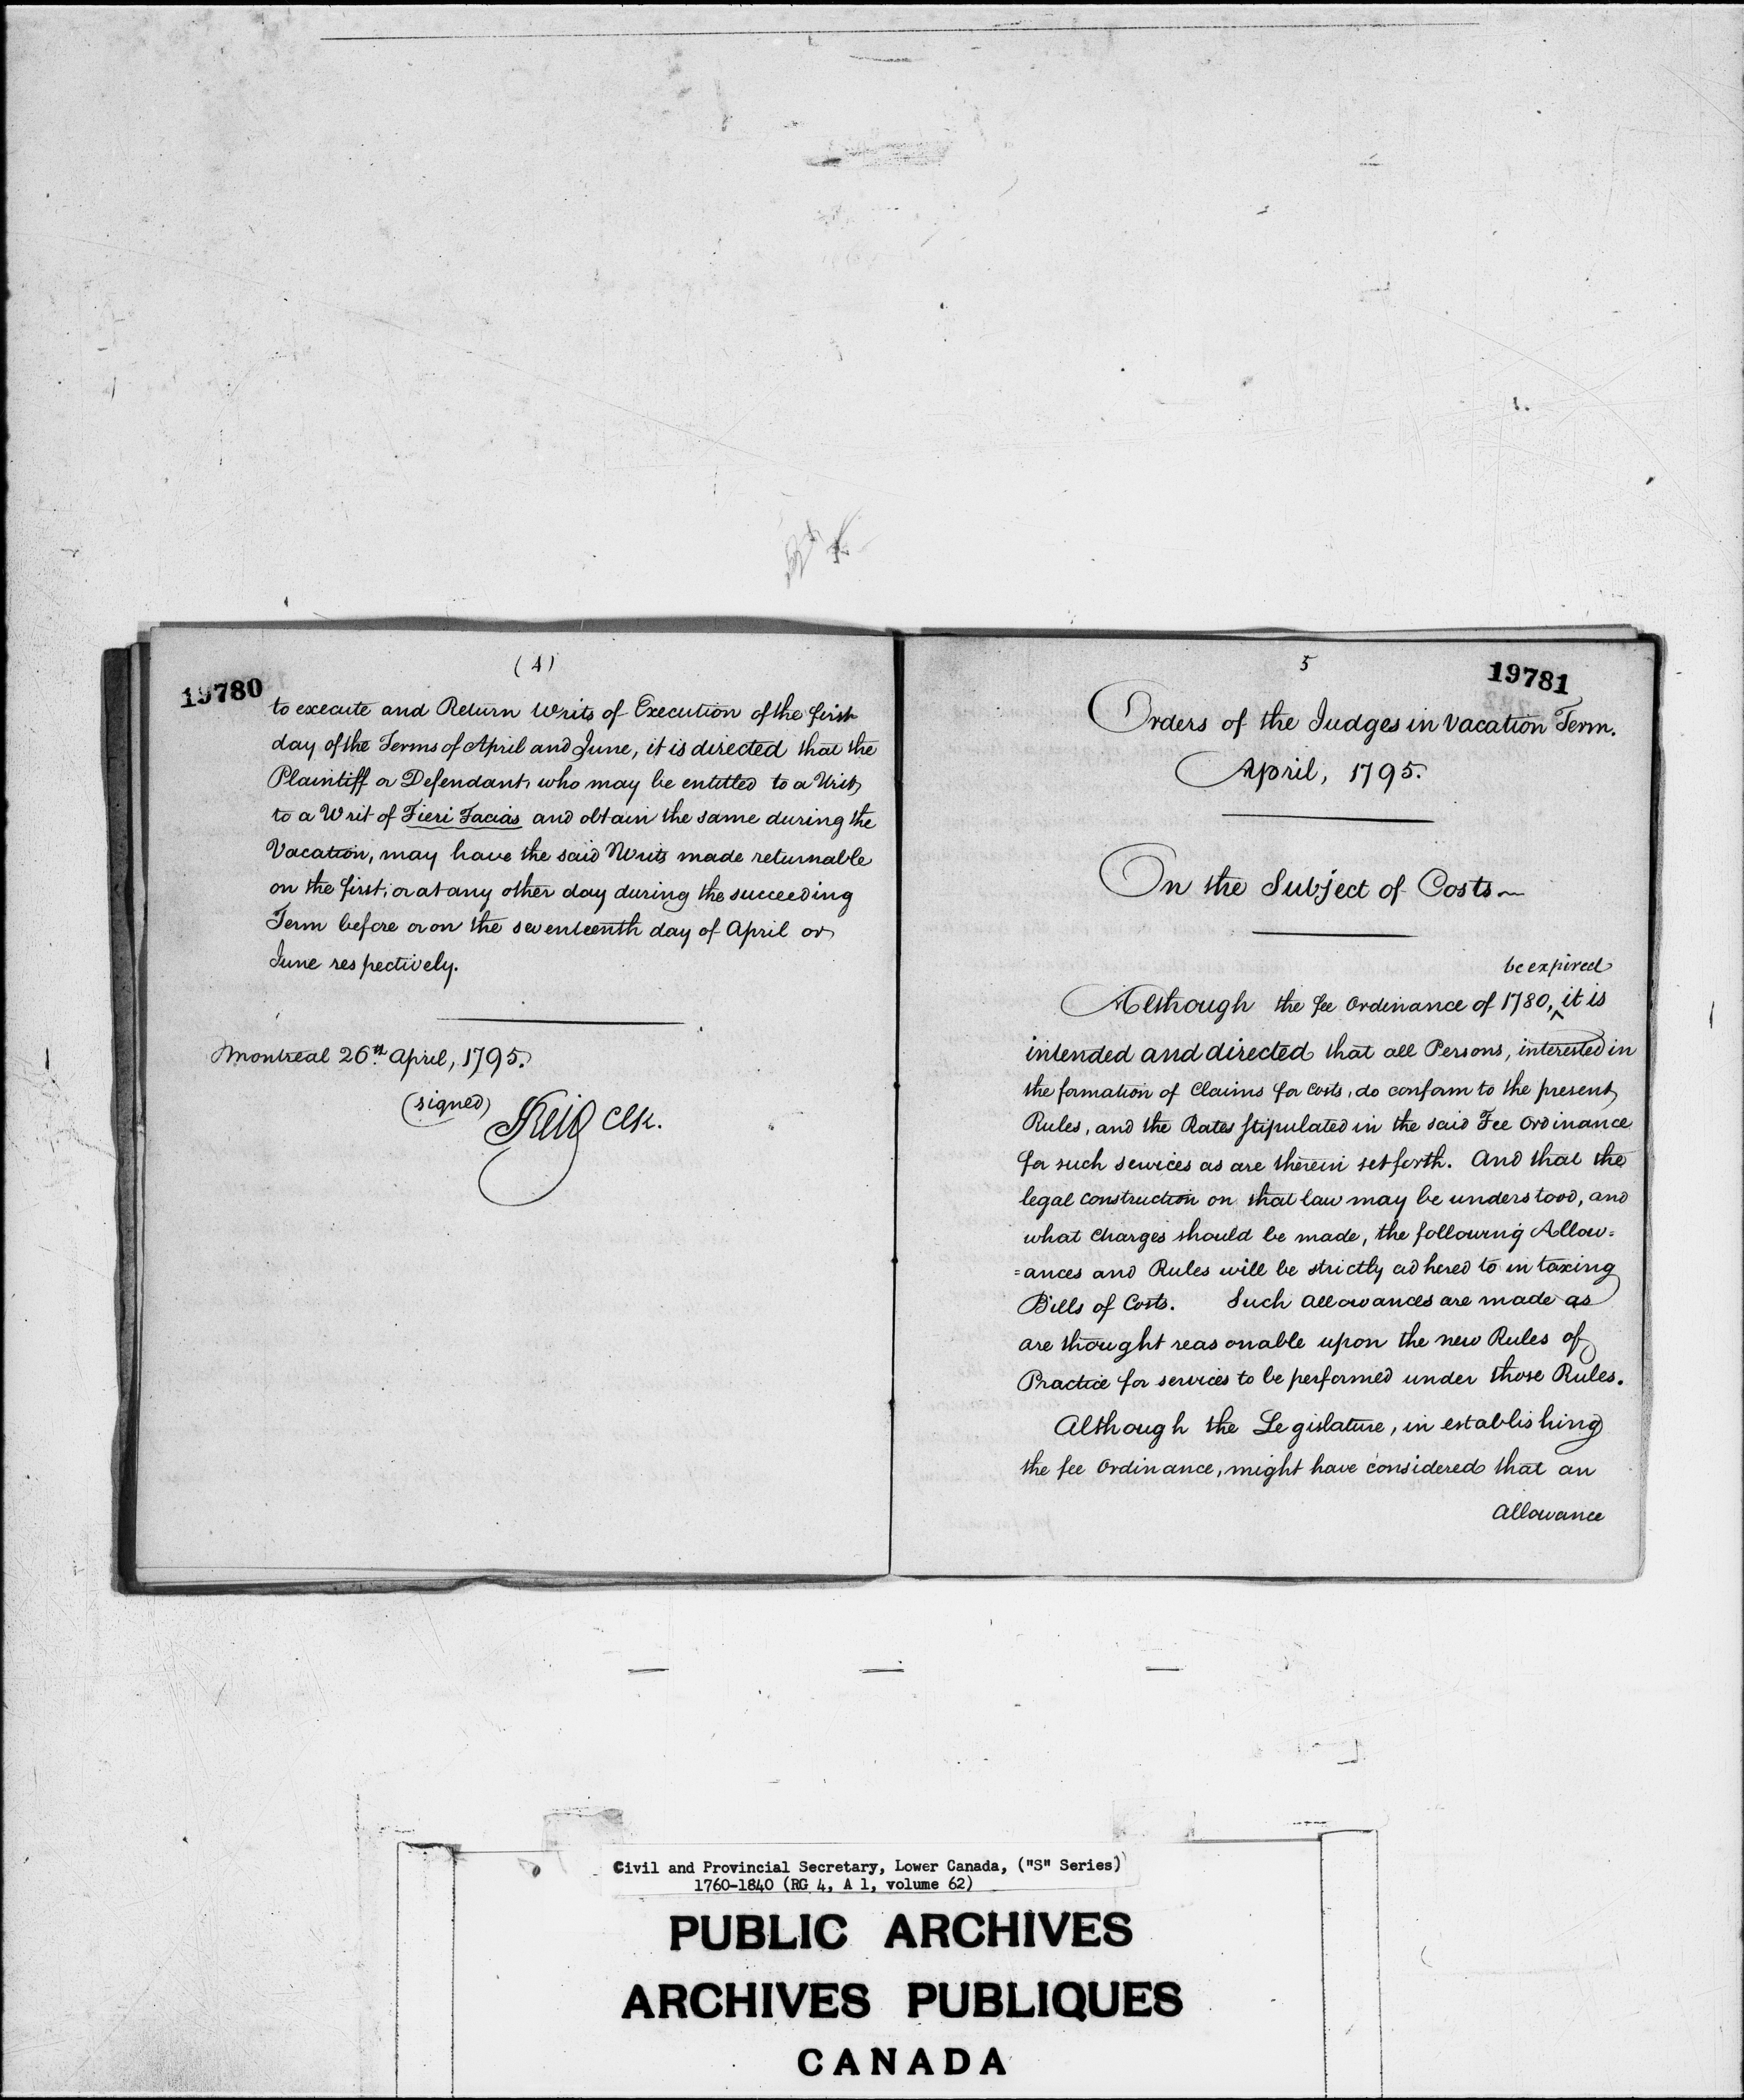 (4)
19780
to execute and Return Writs of Execution of the first
day of the Terms of April and June, it is directed that the
Plaintiff or Defendant, who may be entitled to a Writ,
to a Writ of Fieri Facias and obtain the same during the
Vacation, may have the said Writs made returnable
on the first, or at any other day during the succeeding
Term before or on the seventeenth day of April or
June respectively.
Montreal 26th April, 1795.
(signed)
Reid Clk.
5
19781
Orders of the Judges in Vacation Term.
April, 1795.
On the Subject of Costs
be expired
Although the fee Ordinance of 1780, ^ it is
intended and directed that all Persons, interested in
the formation of Claims for Costs, do conform to the present,
Rules, and the Rates stipulated in the said Fee Ordinance
for such services as are therein set forth. And that the
legal construction on that law may be understood, and
what Charges should be made, the following Allow=
=ances and Rules will be strictly adhered to in taxing
Bills of Costs. Such allowances are made as
are thought reasonable upon the new Rules of
Practice for services to be performed under those Rules.
Although the Legislature, in establishing
the fee Ordinance, might have considered that an
Allowance
Civil and Provincial Secretary, Lower Canada, ("S" Series)
1760-1840 (RG 4, A 1, volume 62)
PUBLIC ARCHIVES
ARCHIVES PUBLIQUES
CANADA